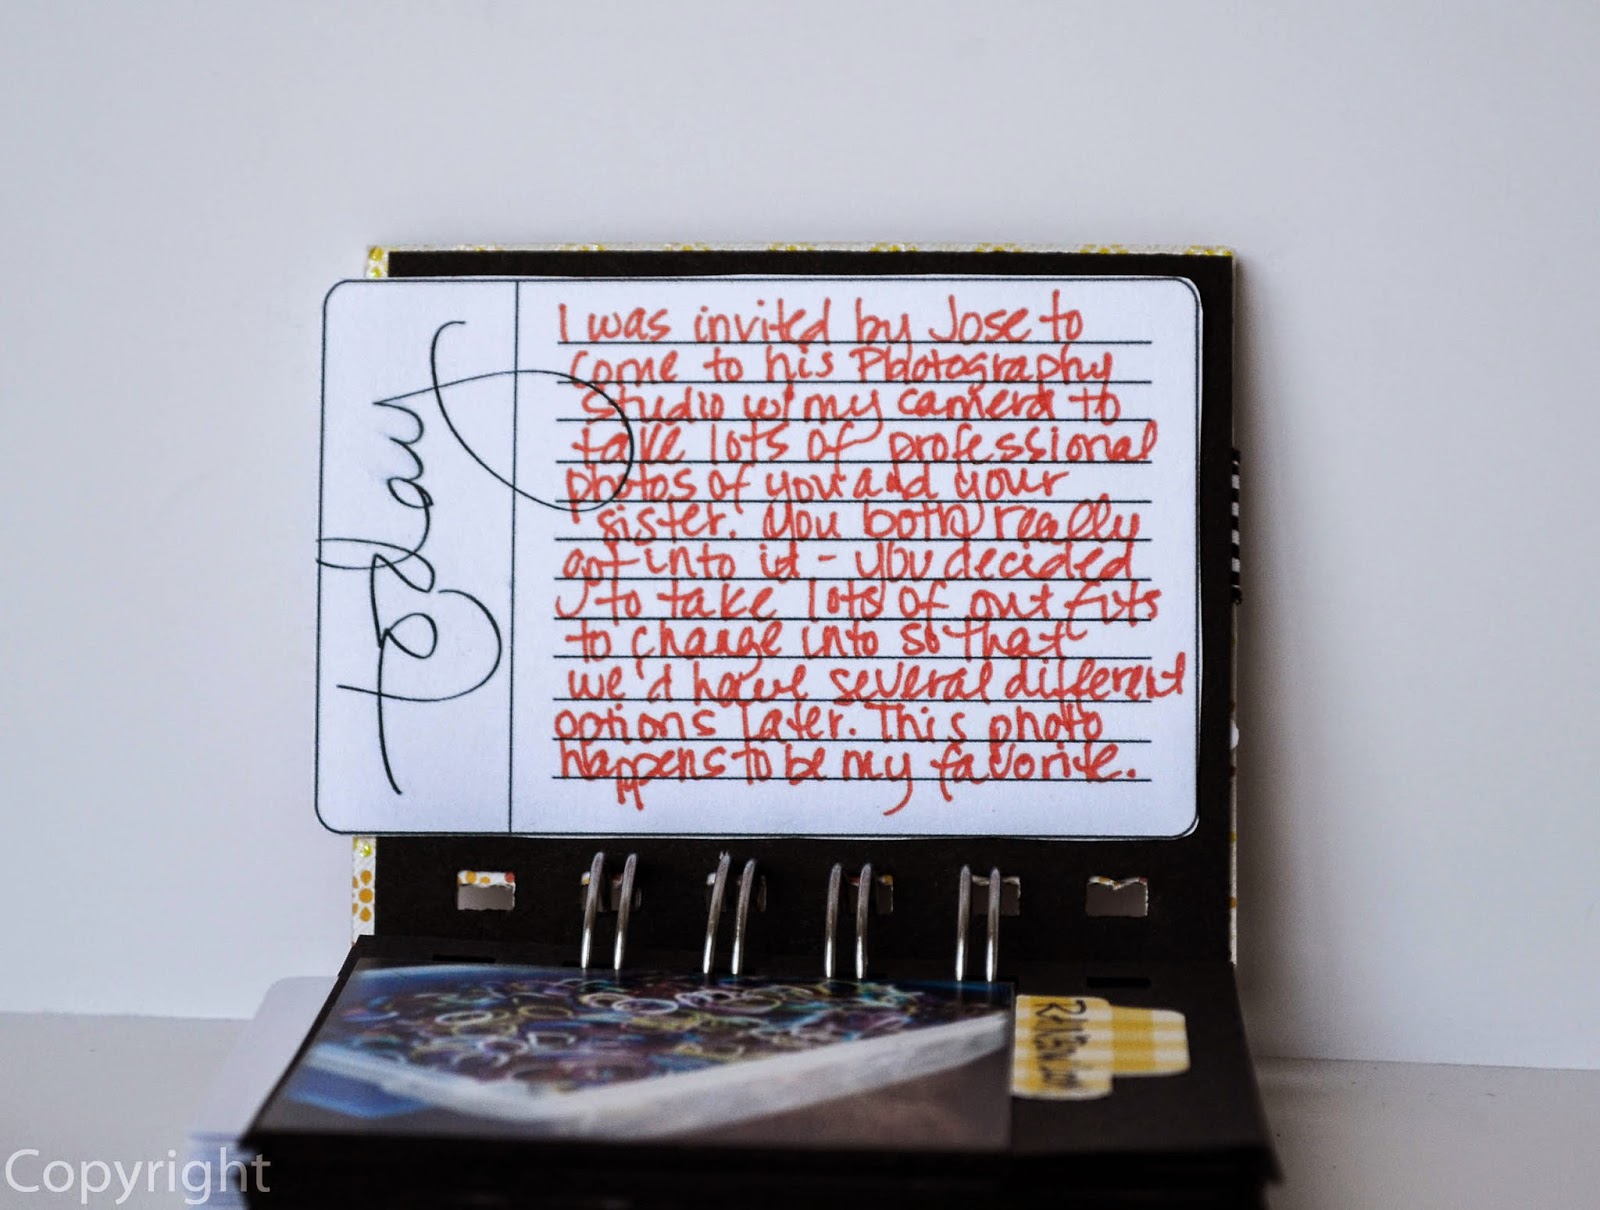 today
I was invited by Jose to
come to his Photography
studio w/ my camera to
take lots of professional
photos of you and your
sister. You both really
got into it - you decided
to take lots of outfits
to change into so that
we'd have several different
options later. This photo
happens to be my favorite.
Copyright